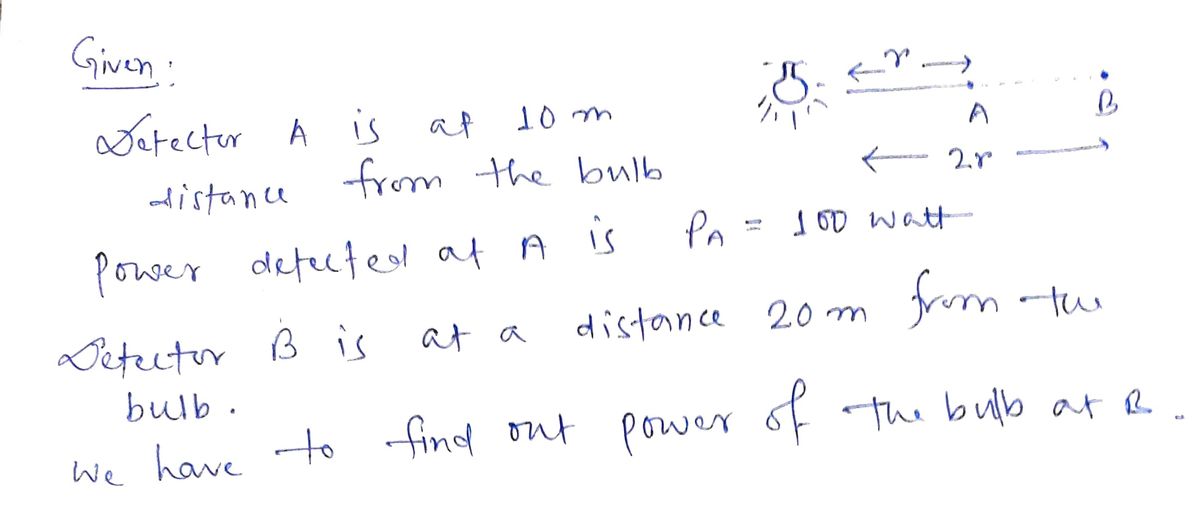 Given:
r
A
B
2r
Detector A is at 10 m
distance from the bulb
Power detected at A is PA = 100 watt
Detector B is at a distance 20 m from the
bulb.
We have to find out power of the bulb at B.